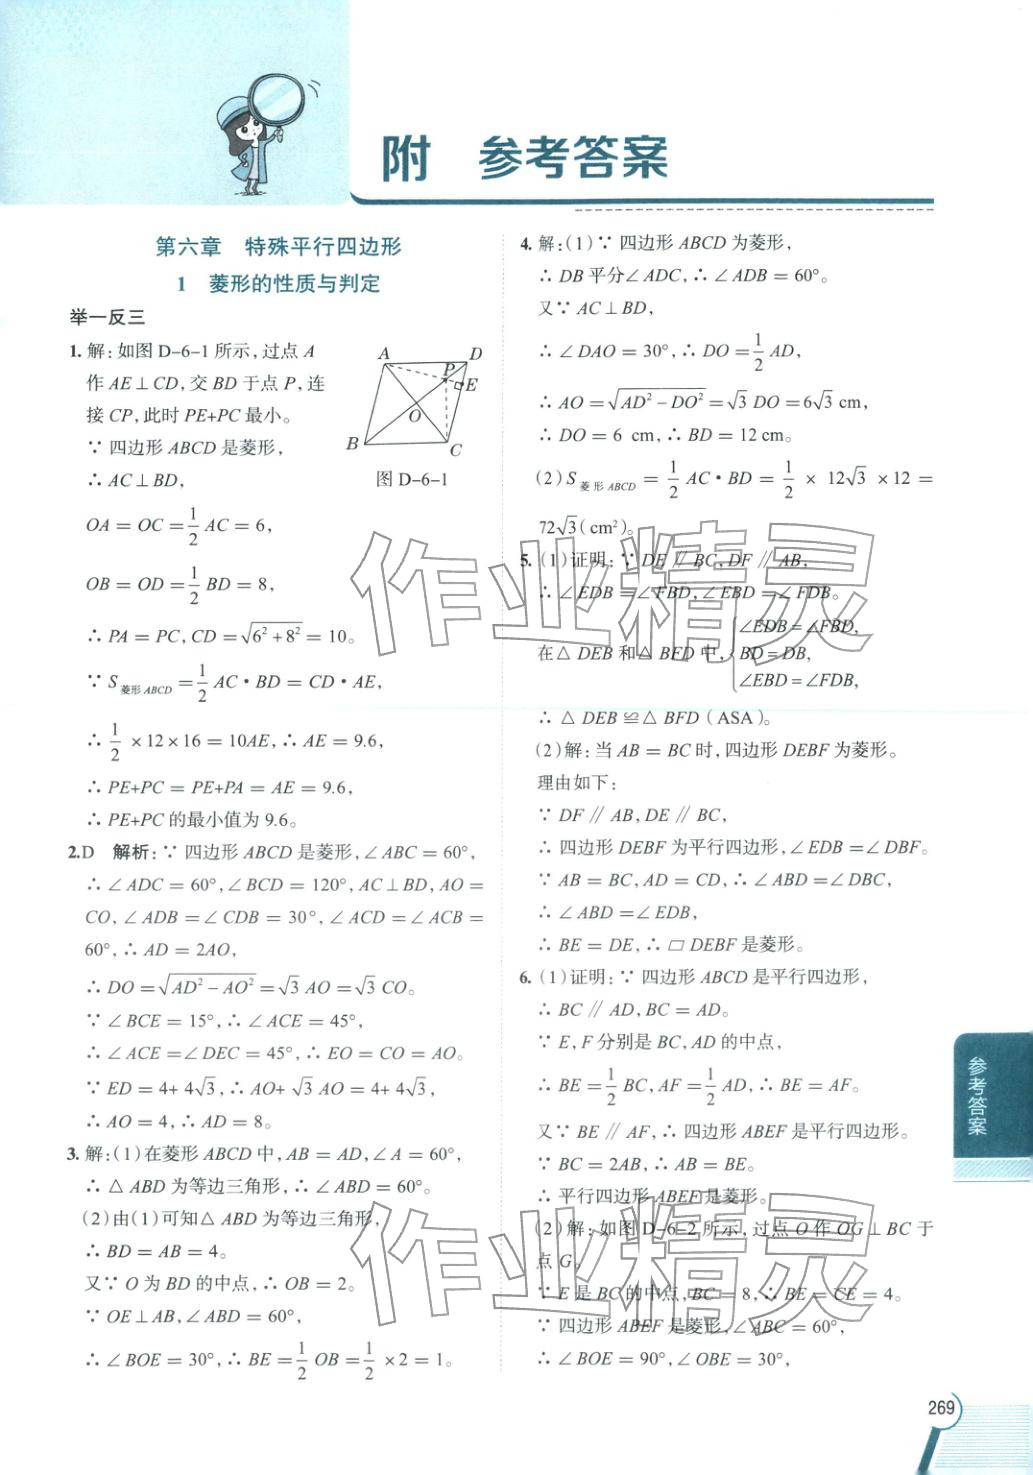 附 参考答案
第六章 特殊平行四边形
1 菱形的性质与判定
举一反三
1. 解:如图 D-6-1 所示,过点 A
作 AE⊥CD,交 BD 于点 P,连
接 CP,此时 PE+PC 最小。
∵ 四边形 ABCD 是菱形,
∴ AC⊥BD,
OA = OC = 1/2 AC = 6,
OB = OD = 1/2 BD = 8,
∴ PA = PC, CD = √(6²+8²) = 10。
∵ S菱形ABCD = 1/2 AC·BD = CD·AE,
∴ 1/2 ×12×16 = 10AE,∴ AE = 9.6,
∴ PE+PC = PE+PA = AE = 9.6,
∴ PE+PC 的最小值为 9.6。
A D
P
E
O
B
C
图 D-6-1
2.D 解析:∵ 四边形 ABCD 是菱形,∠ABC = 60°,
∴ ∠ADC = 60°,∠BCD = 120°,AC⊥BD,AO =
CO,∠ADB = ∠CDB = 30°,∠ACD = ∠ACB =
60°,∴ AD = 2AO,
∴ DO = √(AD²-AO²) = √3 AO = √3 CO。
∵ ∠BCE = 15°,∴ ∠ACE = 45°,
∴ ∠ACE = ∠DEC = 45°,∴ EO = CO = AO。
∵ ED = 4+4√3,∴ AO+√3 AO = 4+4√3,
∴ AO = 4,∴ AD = 8。
3. 解:(1)在菱形 ABCD 中,AB = AD,∠A = 60°,
∴ △ABD 为等边三角形,∴ ∠ABD = 60°。
(2)由(1)可知△ABD 为等边三角形,
∴ BD = AB = 4。
又∵ O 为 BD 的中点,∴ OB = 2。
∵ OE⊥AB,∠ABD = 60°,
∴ ∠BOE = 30°,∴ BE = 1/2 OB = 1/2 ×2 = 1。
4. 解:(1)∵ 四边形 ABCD 为菱形,
∴ DB 平分∠ADC,∴ ∠ADB = 60°。
又∵ AC⊥BD,
∴ ∠DAO = 30°,∴ DO = 1/2 AD,
∴ AO = √(AD²-DO²) = √3 DO = 6√3 cm,
∴ DO = 6 cm,∴ BD = 12 cm。
(2)S菱形ABCD = 1/2 AC·BD = 1/2 × 12√3 ×12 =
72√3(cm²)。
5. (1)证明:∵ DE∥BC,DF∥AB,
∴ ∠EDB = ∠FBD,∠EBD = ∠FDB。
在△DEB 和△BFD 中, { ∠EDB = ∠FBD,
BD = DB,
∠EBD = ∠FDB,
∴ △DEB≌△BFD(ASA)。
(2)解:当 AB = BC 时,四边形 DEBF 为菱形。
理由如下:
∵ DF∥AB,DE∥BC,
∴ 四边形 DEBF 为平行四边形,∠EDB = ∠DBF。
∵ AB = BC,AD = CD,∴ ∠ABD = ∠DBC,
∴ ∠ABD = ∠EDB,
∴ BE = DE,∴ □DEBF 是菱形。
6. (1)证明:∵ 四边形 ABCD 是平行四边形,
∴ BC∥AD,BC = AD。
∵ E,F 分别是 BC,AD 的中点,
∴ BE = 1/2 BC,AF = 1/2 AD,∴ BE = AF。
又∵ BE∥AF,∴ 四边形 ABEF 是平行四边形。
∵ BC = 2AB,∴ AB = BE。
∴ 平行四边形 ABEF 是菱形。
(2)解:如图 D-6-2 所示,过点 O 作 OG⊥BC 于
点 G。
∵ E 是 BC 的中点,BC = 8,∴ BE = CE = 4。
∵ 四边形 ABEF 是菱形,∠ABC = 60°,
∴ ∠BOE = 90°,∠OBE = 30°,
参考答案
269
作业精灵
作业精灵